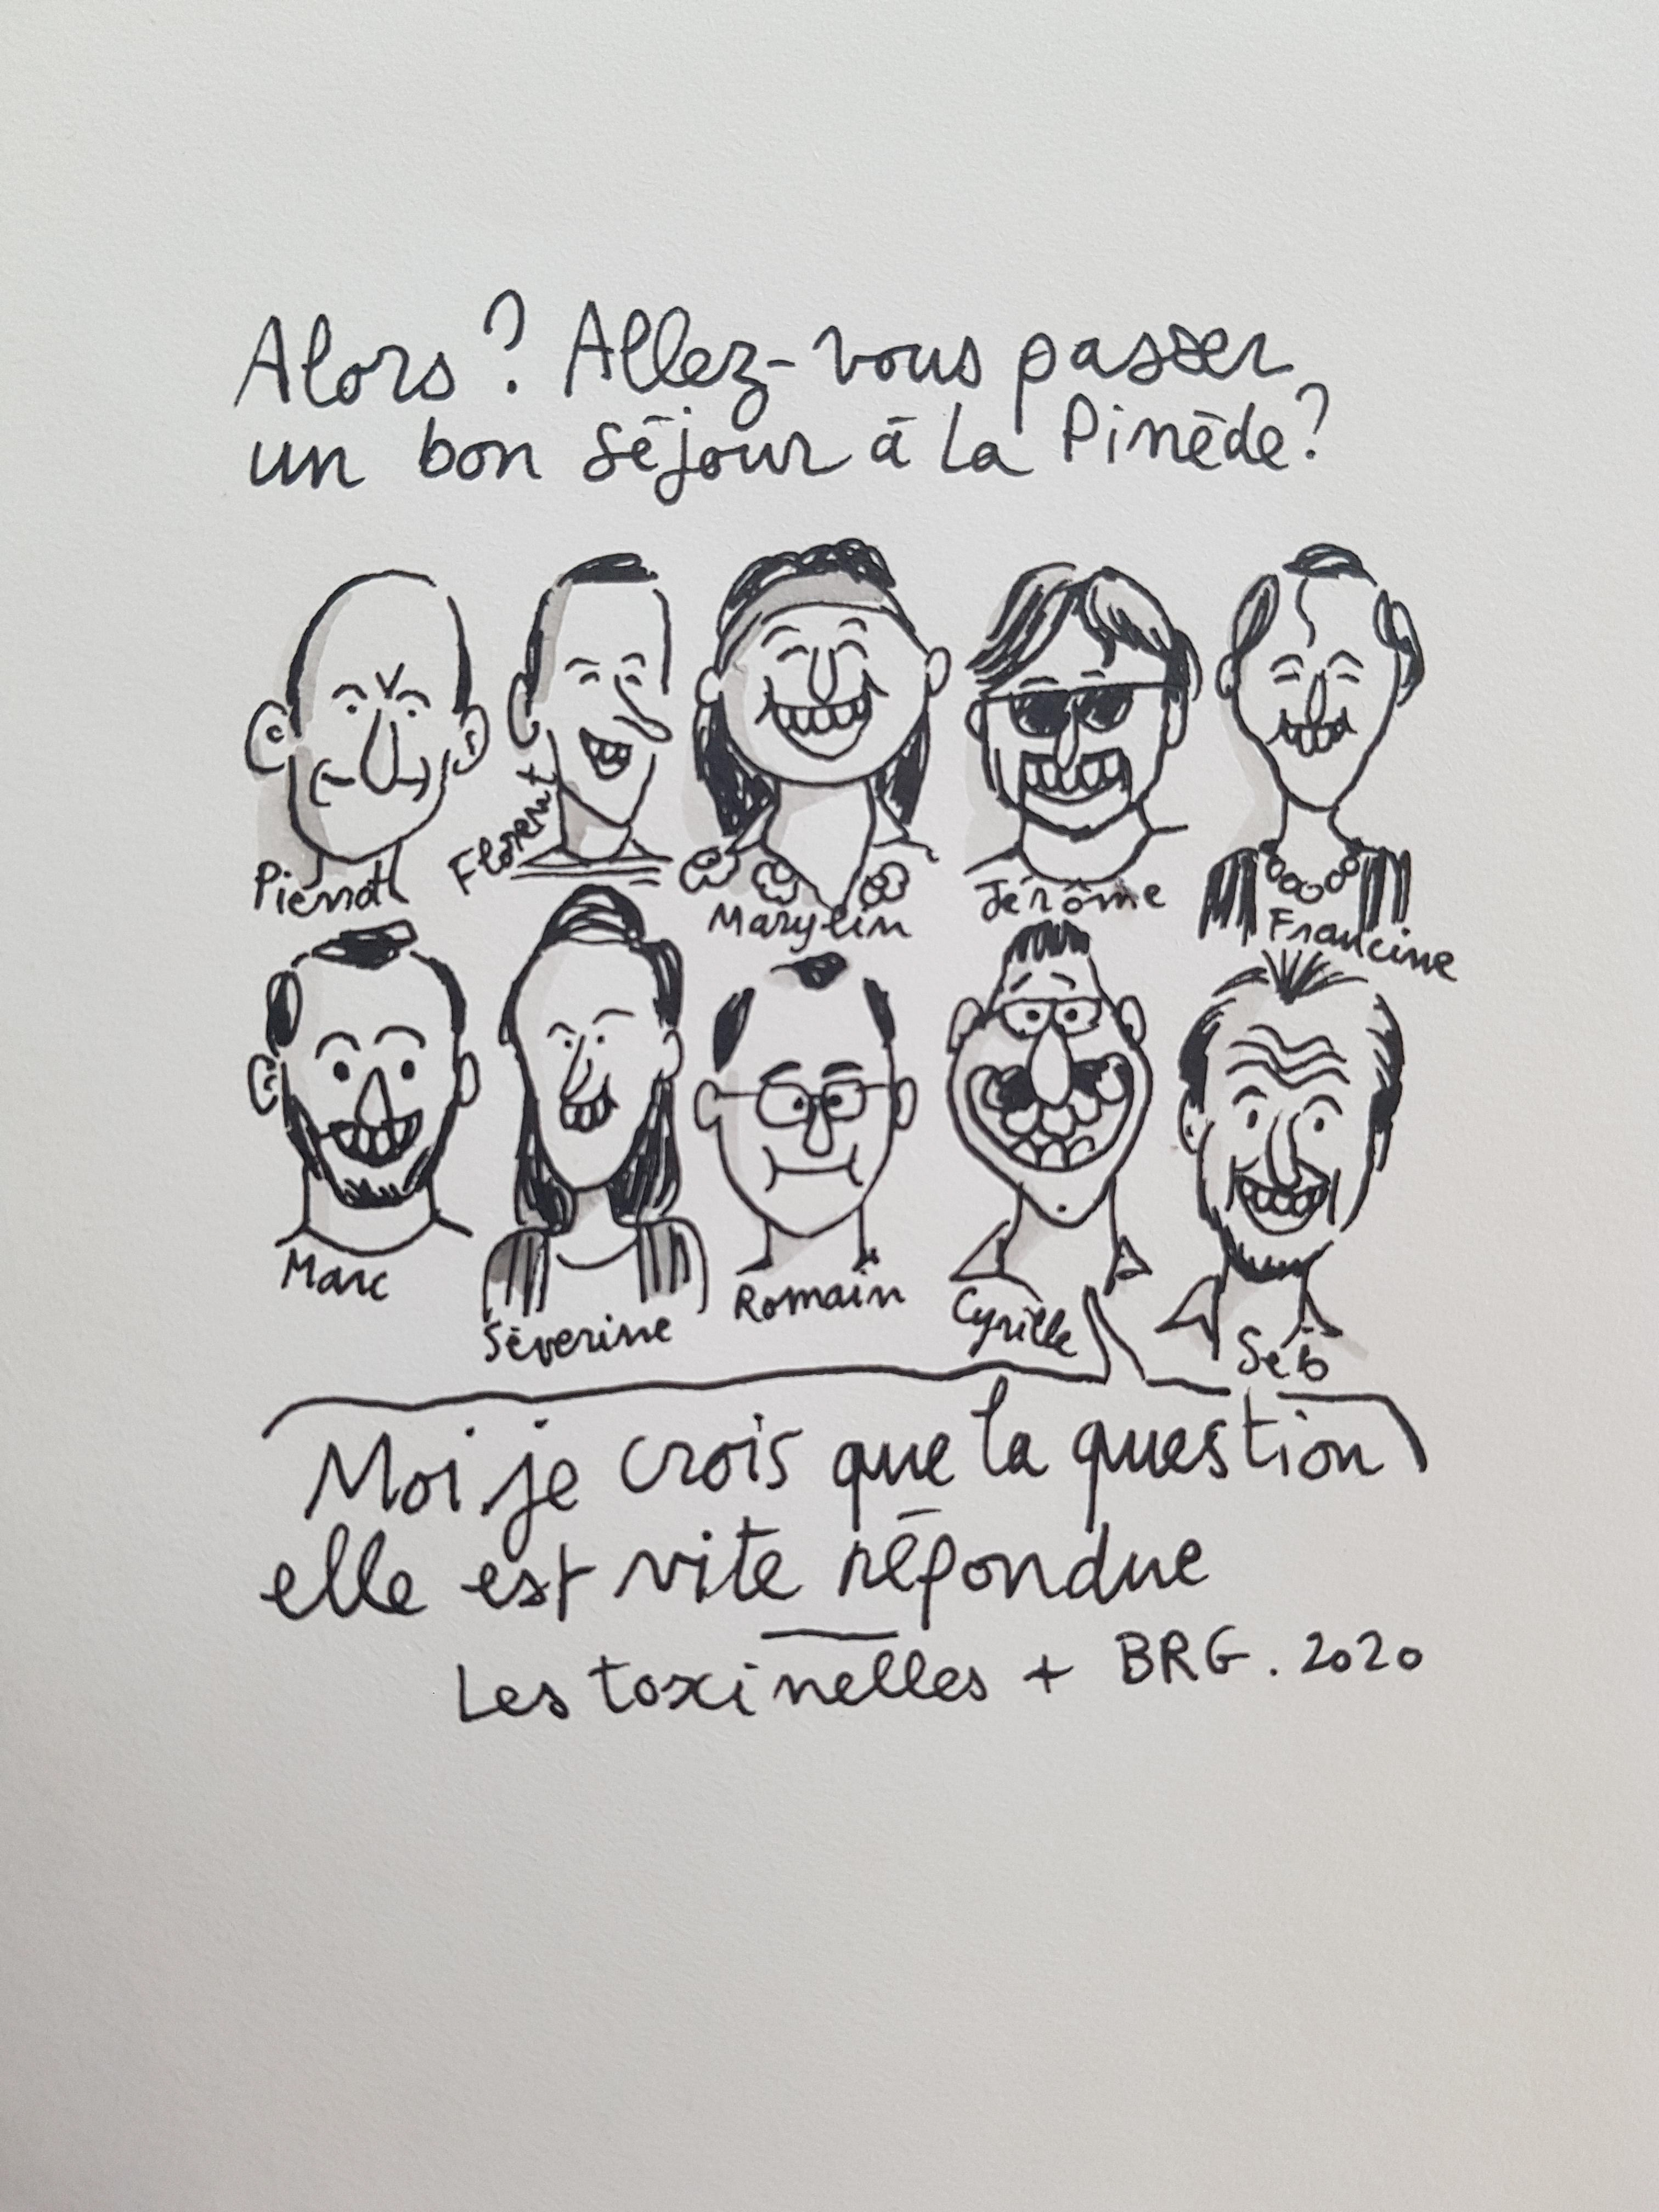 Alors ? Allez-vous passer
un bon séjour à la Pinède ?
Pierrot
Florent
Marylin
Jérôme
Francine
Marc
Séverine
Romain
Cyrille
Seb
Moi je crois que la question
elle est vite répondue
Les toxinelles + BRG. 2020